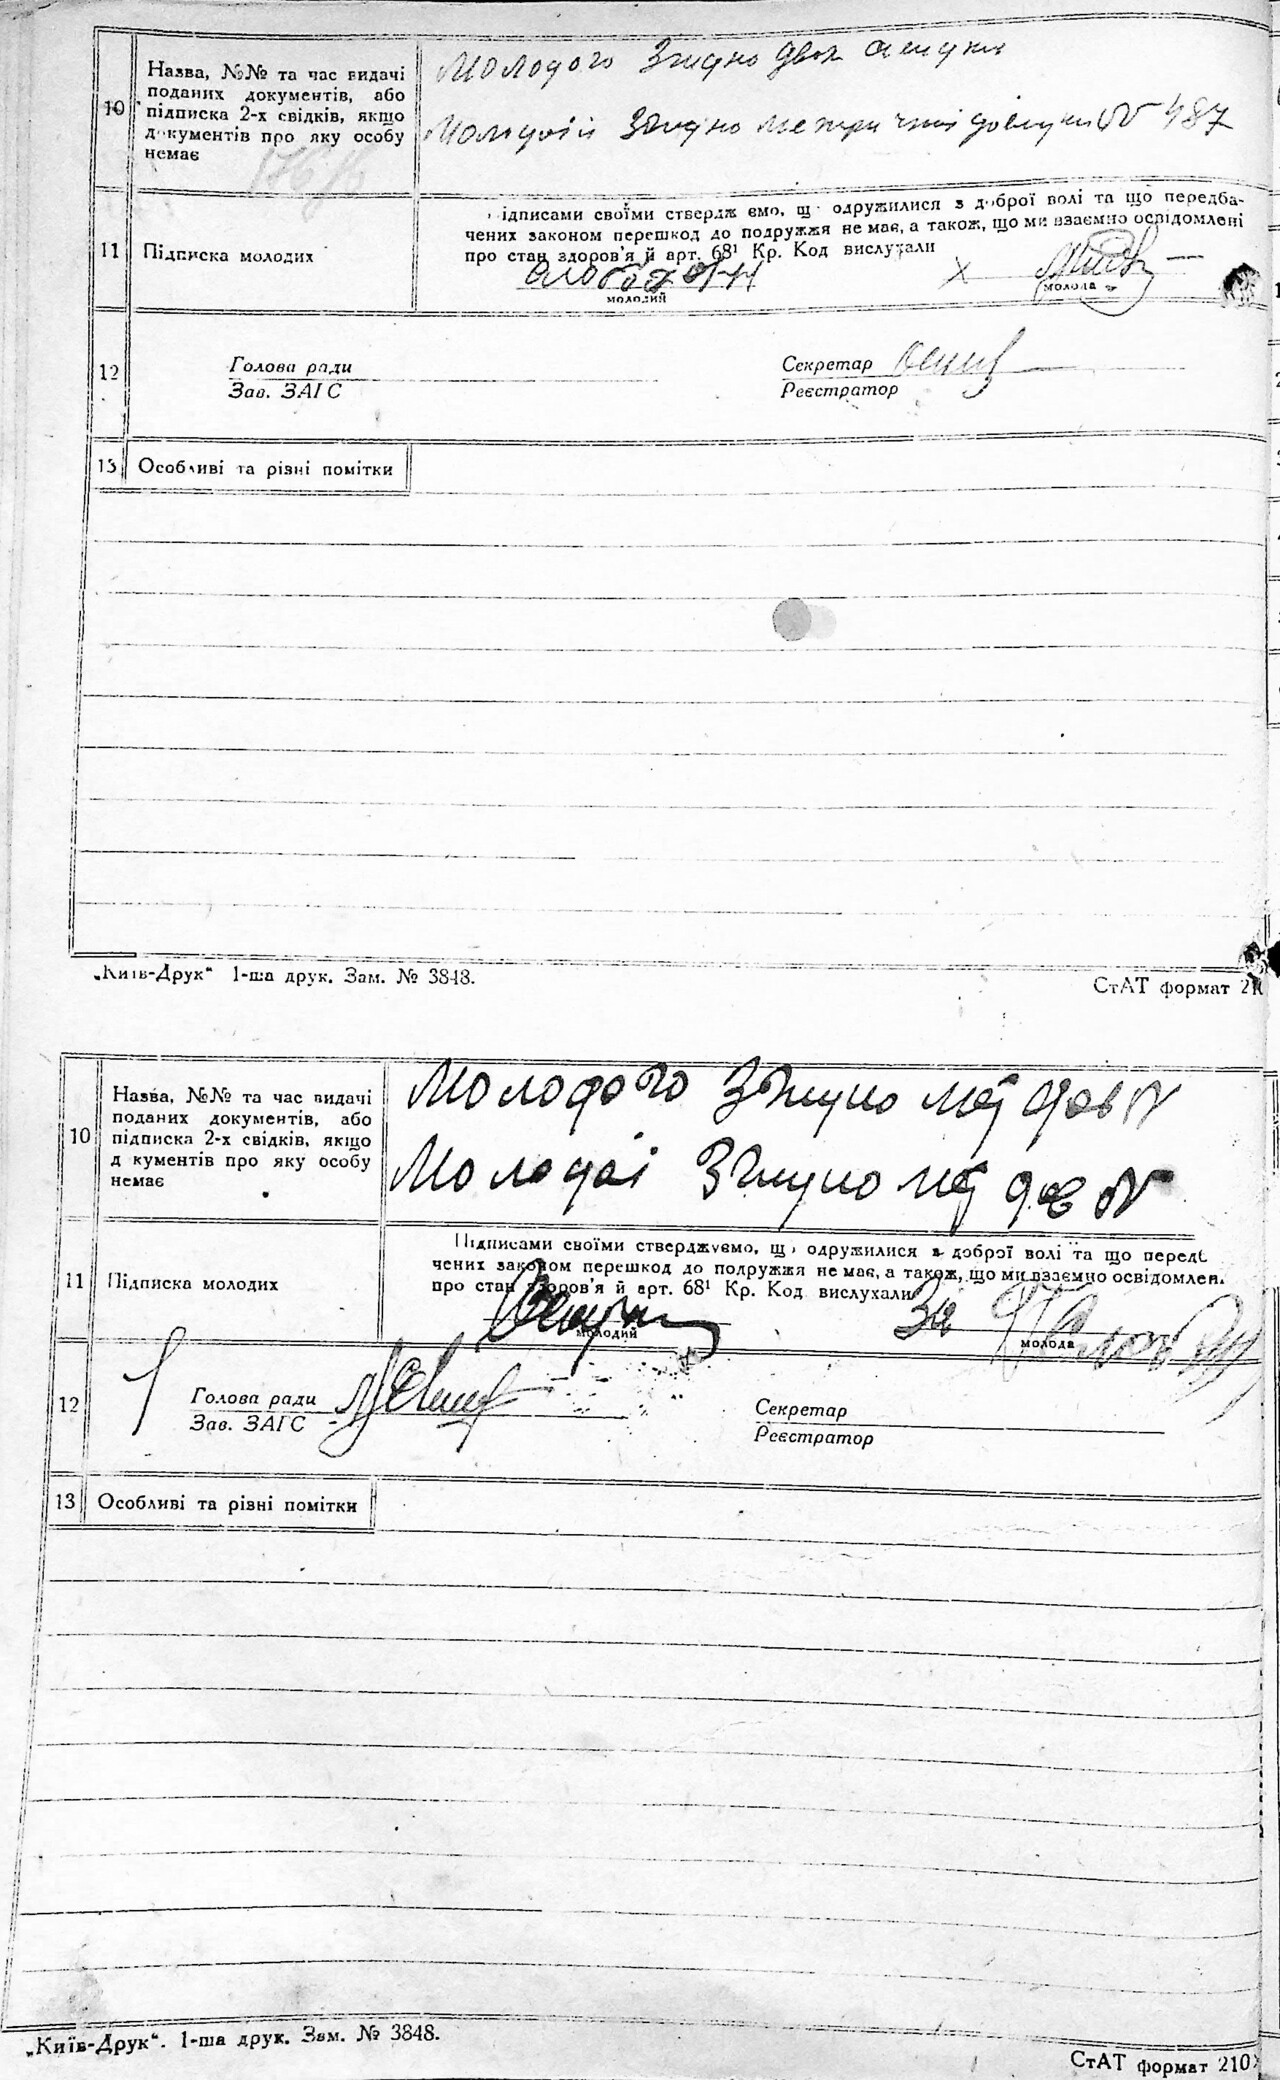 10
Назва, №№ та час видачі
поданих документів, або
підписка 2-х свідків, якщо
документів про яку особу
немає
Молодого Згидно двох
Молодоїи Згидно метричної довідки № 487
11
Підписка молодих
ідписами своїми ствердж ємо, щ одружилися з доброї волі та що передба-
чених законом перешкод до подружжя не має, а також, що ми взаємно освідомлені
про стан здоров'я й арт. 68¹ Кр. Код вислухали
молодий
молода
12
Голова ради
Зав. ЗАГС
Секретар
Реєстратор
13
Особливі та різні помітки
„Київ-Друк“ 1-ша друк. Зам. № 3848.
СтАТ формат 210
10
Назва, №№ та час видачі
поданих документів, або
підписка 2-х свідків, якщо
д кументів про яку особу
немає
Молодого Згидно мет дов №
Молодої Згидно мет дов №
11
Підписка молодих
Підписами своїми стверджуємо, щ одружилися з доброї волі та що передб
чених законом перешкод до подружжя не має, а також, що ми взаємно освідомлен
про стан здоров'я й арт. 68¹ Кр. Код вислухали
За
молодий
молода
12
Голова ради
Зав. ЗАГС
Секретар
Реєстратор
13
Особливі та різні помітки
„Київ-Друк“. 1-ша друк. Зам. № 3848.
СтАТ формат 210